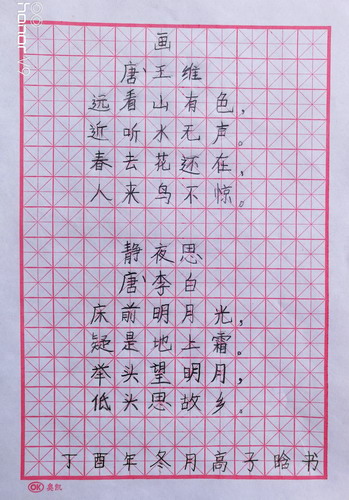 画
唐、王维
远看山有色，
近听水无声。
春去花还在，
人来鸟不惊。
静夜思
唐、李白
床前明月光，
疑是地上霜。
举头望明月，
低头思故乡。
丁酉年冬月高子晗书
OK 奥凯
honor V9